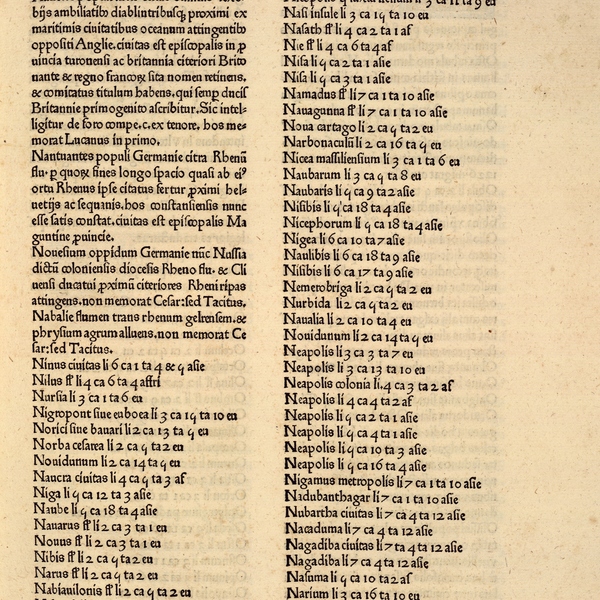 bijs ambiliatibꝰ diablintribusqꝫ proximi ex
maritimis ciuitatibus oceanum attingentibꝰ
oppositi Anglie. ciuitas est episcopalis in ꝓ
uincia turonensi ac britannia citeriori Brito
nante & regno francoꝝ sita nomen retinens,
& comitatus titulum habens. qui semꝑ ducis
Britannie primogenito ascribitur. Sic intel-
ligitur de foro compe. c. ex tenore, hos me-
morat Lucanus in primo.
Nantuantes populi Germanie citra Rhenū
flu. ꝑ quoꝝ fines longo spacio quasi ab eiꝰ
ortu Rhenus ipse citatus fertur ꝓximi hel-
uetijs ac sequanis. hos constansiensis nunc
esse satis constat. ciuitas est episcopalis Ma
guntine ꝓuincie.
Nouesium oppidum Germanie nūc Nussia
dictū coloniensis diocesis Rheno flu. & Cli
uensi ducatui ꝓximū citeriores Rheni ripas
attingens. non memorat Cesar: sed Tacitus.
Nabalie flumen trans rhenum gelrensem. &
phrysium agrum alluens. non memorat Ce
sar: sed Tacitus.
Ninus ciuitas li 6 ca 1 ta 4 & ꝗ asie
Nilus ff li 4 ca 6 ta 4 affri
Nursia li 3 ca 1 ta 6 eu
Nigropont siue euboea li 3 ca 1ꝗ ta 10 eu
Norici siue bauari li 2 ca 13 ta ꝗ eu
Norba cesarea li 2 ca ꝗ ta 2 eu
Nouidunum li 2 ca 14 ta ꝗ eu
Naucra ciuitas li 4 ca ꝗ ta 3 af
Niga li ꝗ ca 12 ta 3 asie
Naube li ꝗ ca 18 ta 4 asie
Nauarus ff li 2 ca 3 ta 1 eu
Nouus ff li 2 ca 3 ta 1 eu
Nibis ff li 2 ca ꝗ ta 2 eu
Narus ff li 2 ca ꝗ ta 2 eu
Nabiauilonis ff li 2 ca ꝗ ta 2 eu
Nasi insule li 3 ca 1ꝗ ta 10 eu
Nasath ff li 4 ca 2 ta 1 af
Nie ff li 4 ca 6 ta 4 af
Nisa li ꝗ ca 2 ta 1 asie
Nisa li ꝗ ca 3 ta 1 asie
Namadus ff li 7 ca 1 ta 10 asie
Nauagunna ff li 7 ca 1 ta 10 asie
Noua cartago li 2 ca ꝗ ta 2 eu
Narbonaculū li 2 ca 16 ta ꝗ eu
Nicea massiliensium li 3 ca 1 ta 6 eu
Naubarum li 3 ca ꝗ ta 8 eu
Naubaris li ꝗ ca 9 ta 2 asie
Nisibis li ꝗ ca 18 ta 4 asie
Nicephorum li ꝗ ca 18 ta 4 asie
Nigea li 6 ca 10 ta 7 asie
Naulibis li 6 ca 18 ta 9 asie
Nisibis li 6 ca 17 ta 9 asie
Nemerobriga li 2 ca ꝗ ta 2 eu
Nurbida li 2 ca ꝗ ta 2 eu
Naualia li 2 ca 10 ta 4 eu
Nouidunum li 2 ca 14 ta ꝗ eu
Neapolis li 3 ca 3 ta 7 eu
Neapolis li 3 ca 13 ta 10 eu
Neapolis colonia li. 4 ca 3 ta 2 af
Neapolis li 4 ca 4 ta 2 af
Neapolis li ꝗ ca 2 ta 1 asie
Neapolis li ꝗ ca 4 ta 1 asie
Neapolis li ꝗ ca 10 ta 3 asie
Neapolis li ꝗ ca 16 ta 4 asie
Nigamus metropolis li 7 ca 1 ta 10 asie
Nadubanthagar li 7 ca 1 ta 10 asie
Nubartha ciuitas li 7 ca 4 ta 12 asie
Nacaduma li 7 ca 4 ta 12 asie
Nagadiba ciuitas li 7 ta 4 ta 12 asie
Nagadiba li 7 ca 4 ta 12 asie
Nasuma li ꝗ ca 10 ta 2 af
Narium li 3 ca 16 ta 10 eu